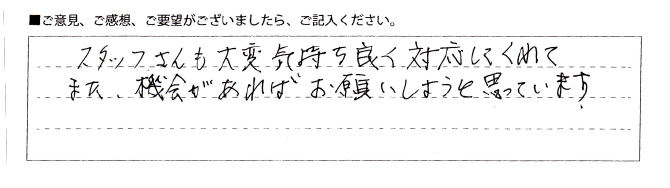 ■ご意見、ご感想、ご要望がございましたら、ご記入ください。
スタッフさんも大変気持ち良く対応してくれて
また、機会があればお願いしようと思っています!